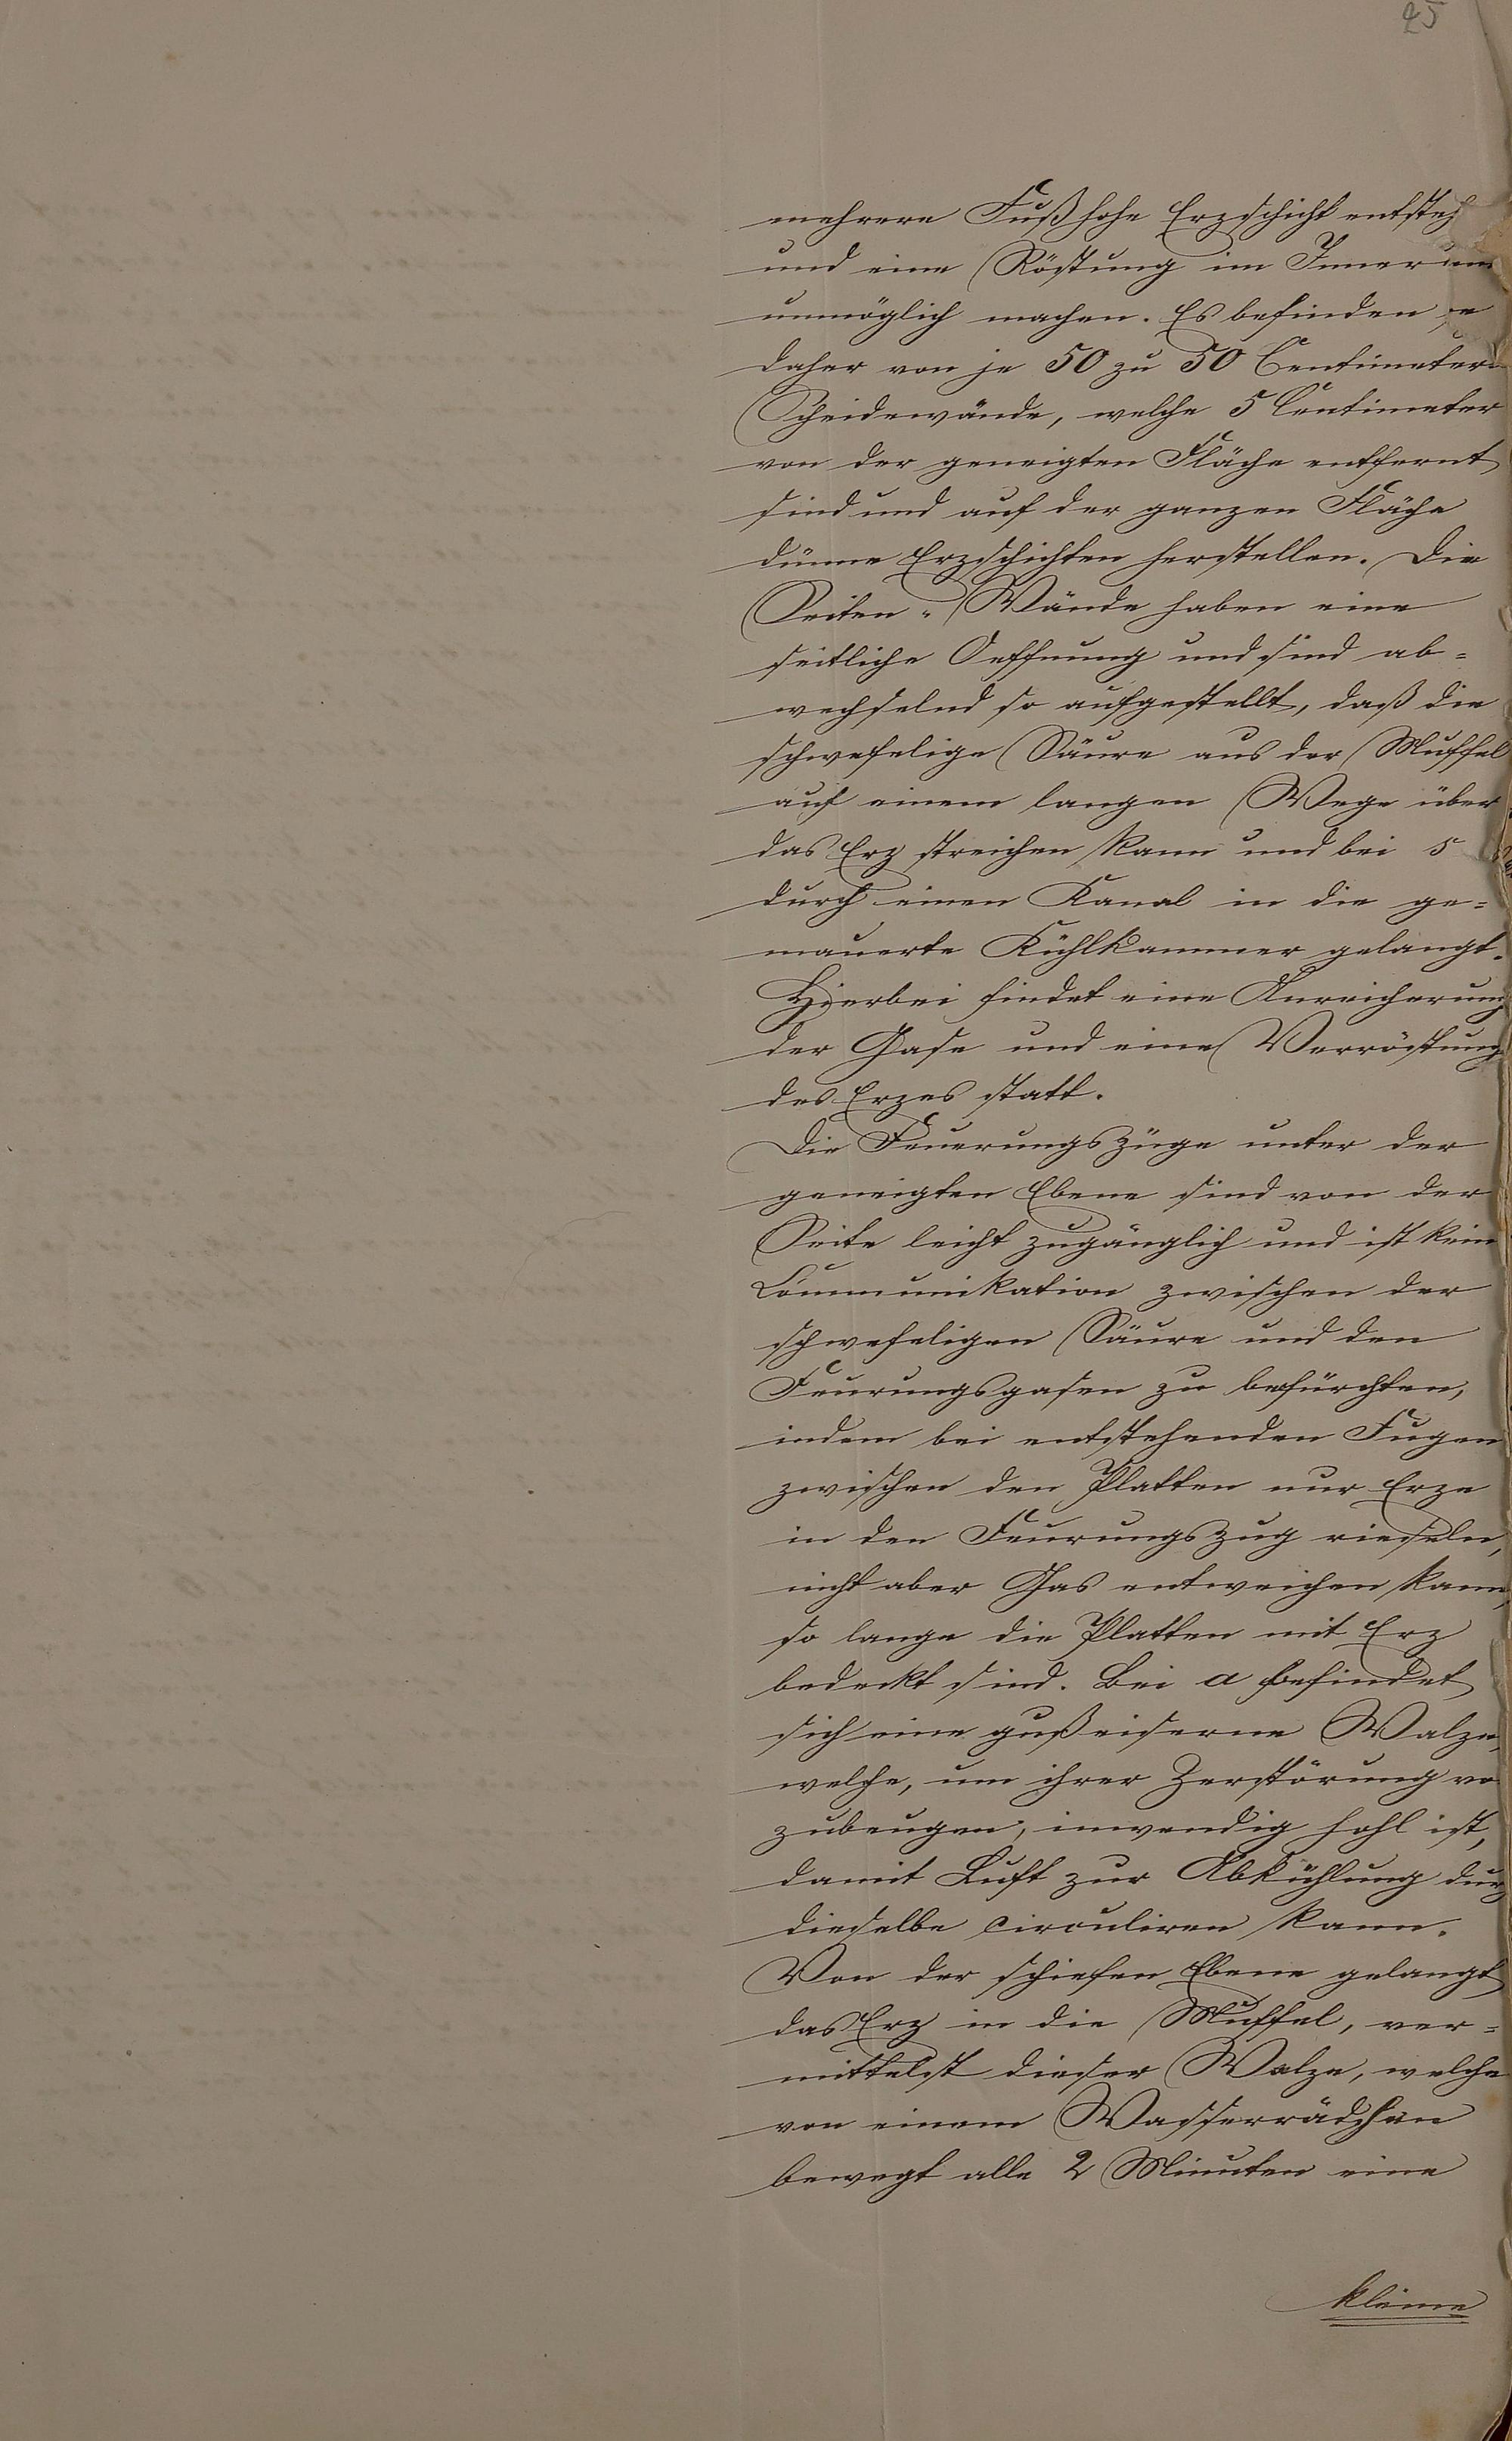 25
mehrere Fuß hohe Erzschicht entsteh
und eine Röstung im Innern
unmöglich machen. Es befinden
daher von je 50 zu 50 Centimeter
Scheidewände, welche 5 Centimeter
von der geneigten Fläche entfernt
sind und auf der ganzen Fläche
dünne Erzschichten herstellen. Die
Seiten-Wände haben eine
seitliche Oeffnung und sind ab=
wechselnd so aufgestellt, daß die
schwefelige Säure aus der Muffel
auf einem langen Wege über
das Erz streichen kann und bei 5
durch einen Kanal in die ge=
mauerte Kühlkammer gelangt.
Hierbei findet eine Anreicherung
der Gase und eine Verröstung
des Erzes statt.
Die Feuerungszüge unter der
geneigten Ebene sind von der
Seite leicht zugänglich und ist kein
Communikation zwischen der
schwefeligen Säure und den
Feurungsgasen zu befürchten,
indem bei entstehenden Fugen
zwischen den Platten nur Erze
in den Feurungszug rieseln,
nicht aber Gas entweichen kann,
so lange die Platten mit Erz
bedeckt sind. Bei a befindet
sich eine gußeiserne Walze,
welche, um ihrer Zerstörung vo
zubeugen, inwendig hohl ist,
damit Luft zur Abkühlung durch
dieselbe circuliren kann.
Von der schiefen Ebene gelangt
das Erz in die Muffel, ver=
mittelst dieser Walze, welche
von einem Wasserrädchen
bewegt alle 2 Minuten eine
kleine